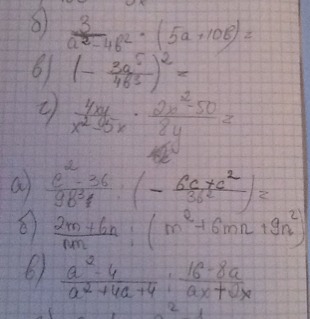 б) 3/(a²-4b²) · (5a+10b)=
в) (- 3a⁵/4b³)²=
г) 4xy/(x²-5x) · (2x²-50)/8y =
а) (c²-36)/9b³ : (- (6c+c²)/3b²)=
б) (2m+6n)/nm : (m²+6mn+9n²)
в) (a²-4)/(a²+4a+4) : (16-8a)/(ax+2x)